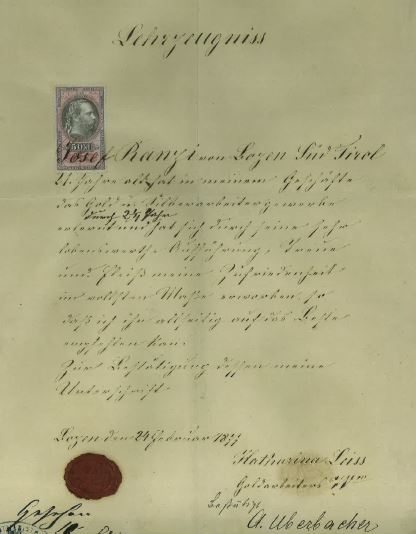 Lehrzeugniss
50 KR
Josef Ranzi von Bozen Süd Tirol
21 Jahre alt, hat in meinem Geschäfte
das Gold u. Silberarbeitergewerbe
durch 2½ Jahr
erlernt und hat sich durch seine sehr
lobenswerthe Aufführung, Treue
und Fleiß meine Zufriedenheit
im vollsten Maße erworben, so
daß ich ihn allseitig auf das Beste
empfehlen kan.
Zur Bestätigung dessen meine
Unterschrift
Bozen den 24 Februar 187
Katharina Leiss
Goldarbeiters
Bestätigt
A. Uberbacher
Gesehen